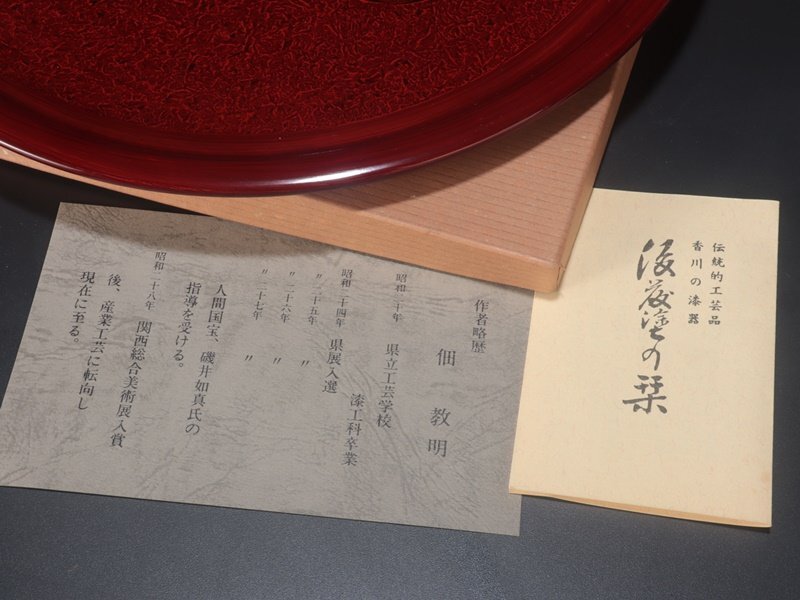 作者略歴
佃 教明
昭和二十年 県立工芸学校
漆工科卒業
昭和二十四年 県展入選
〃 二十五年 〃
〃 二十六年 〃
〃 二十七年 〃
人間国宝、磯井如真氏の
指導を受ける。
昭和二十八年 関西総合美術展入賞
後、産業工芸に転向し
現在に至る。
伝統的工芸品
香川の漆器
後藤塗の栞